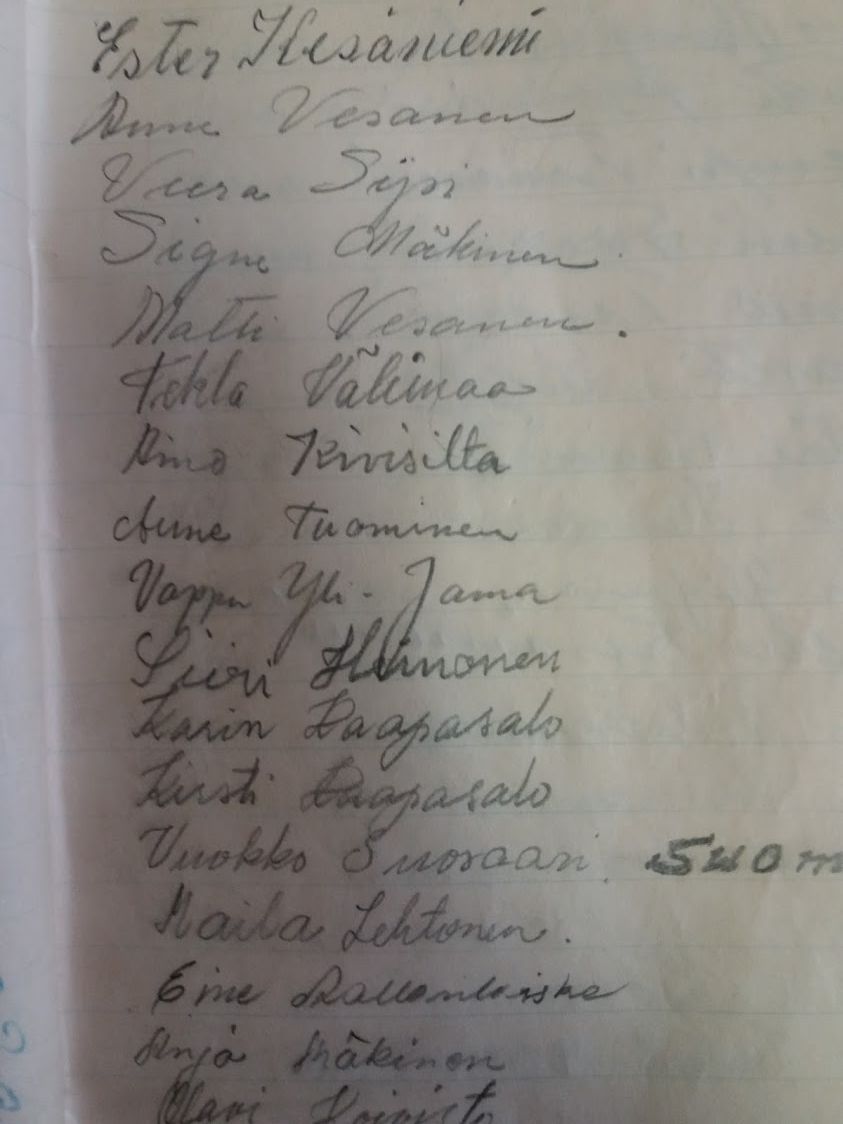 Ester Kesäniemi
Aune Vesanen
Veera Sipi
Signe Mäkinen
Matti Vesanen.
Tekla Välimaa
Aino Kivisilta
Aune Tuominen
Vappu Yli-Jama
Siiri Heinonen
Karin Haapasalo
Kirsti Haapasalo
Vuokko Suosaari. Suom
Maila Lehtonen.
Eine
Anja Mäkinen
Olavi Koivisto